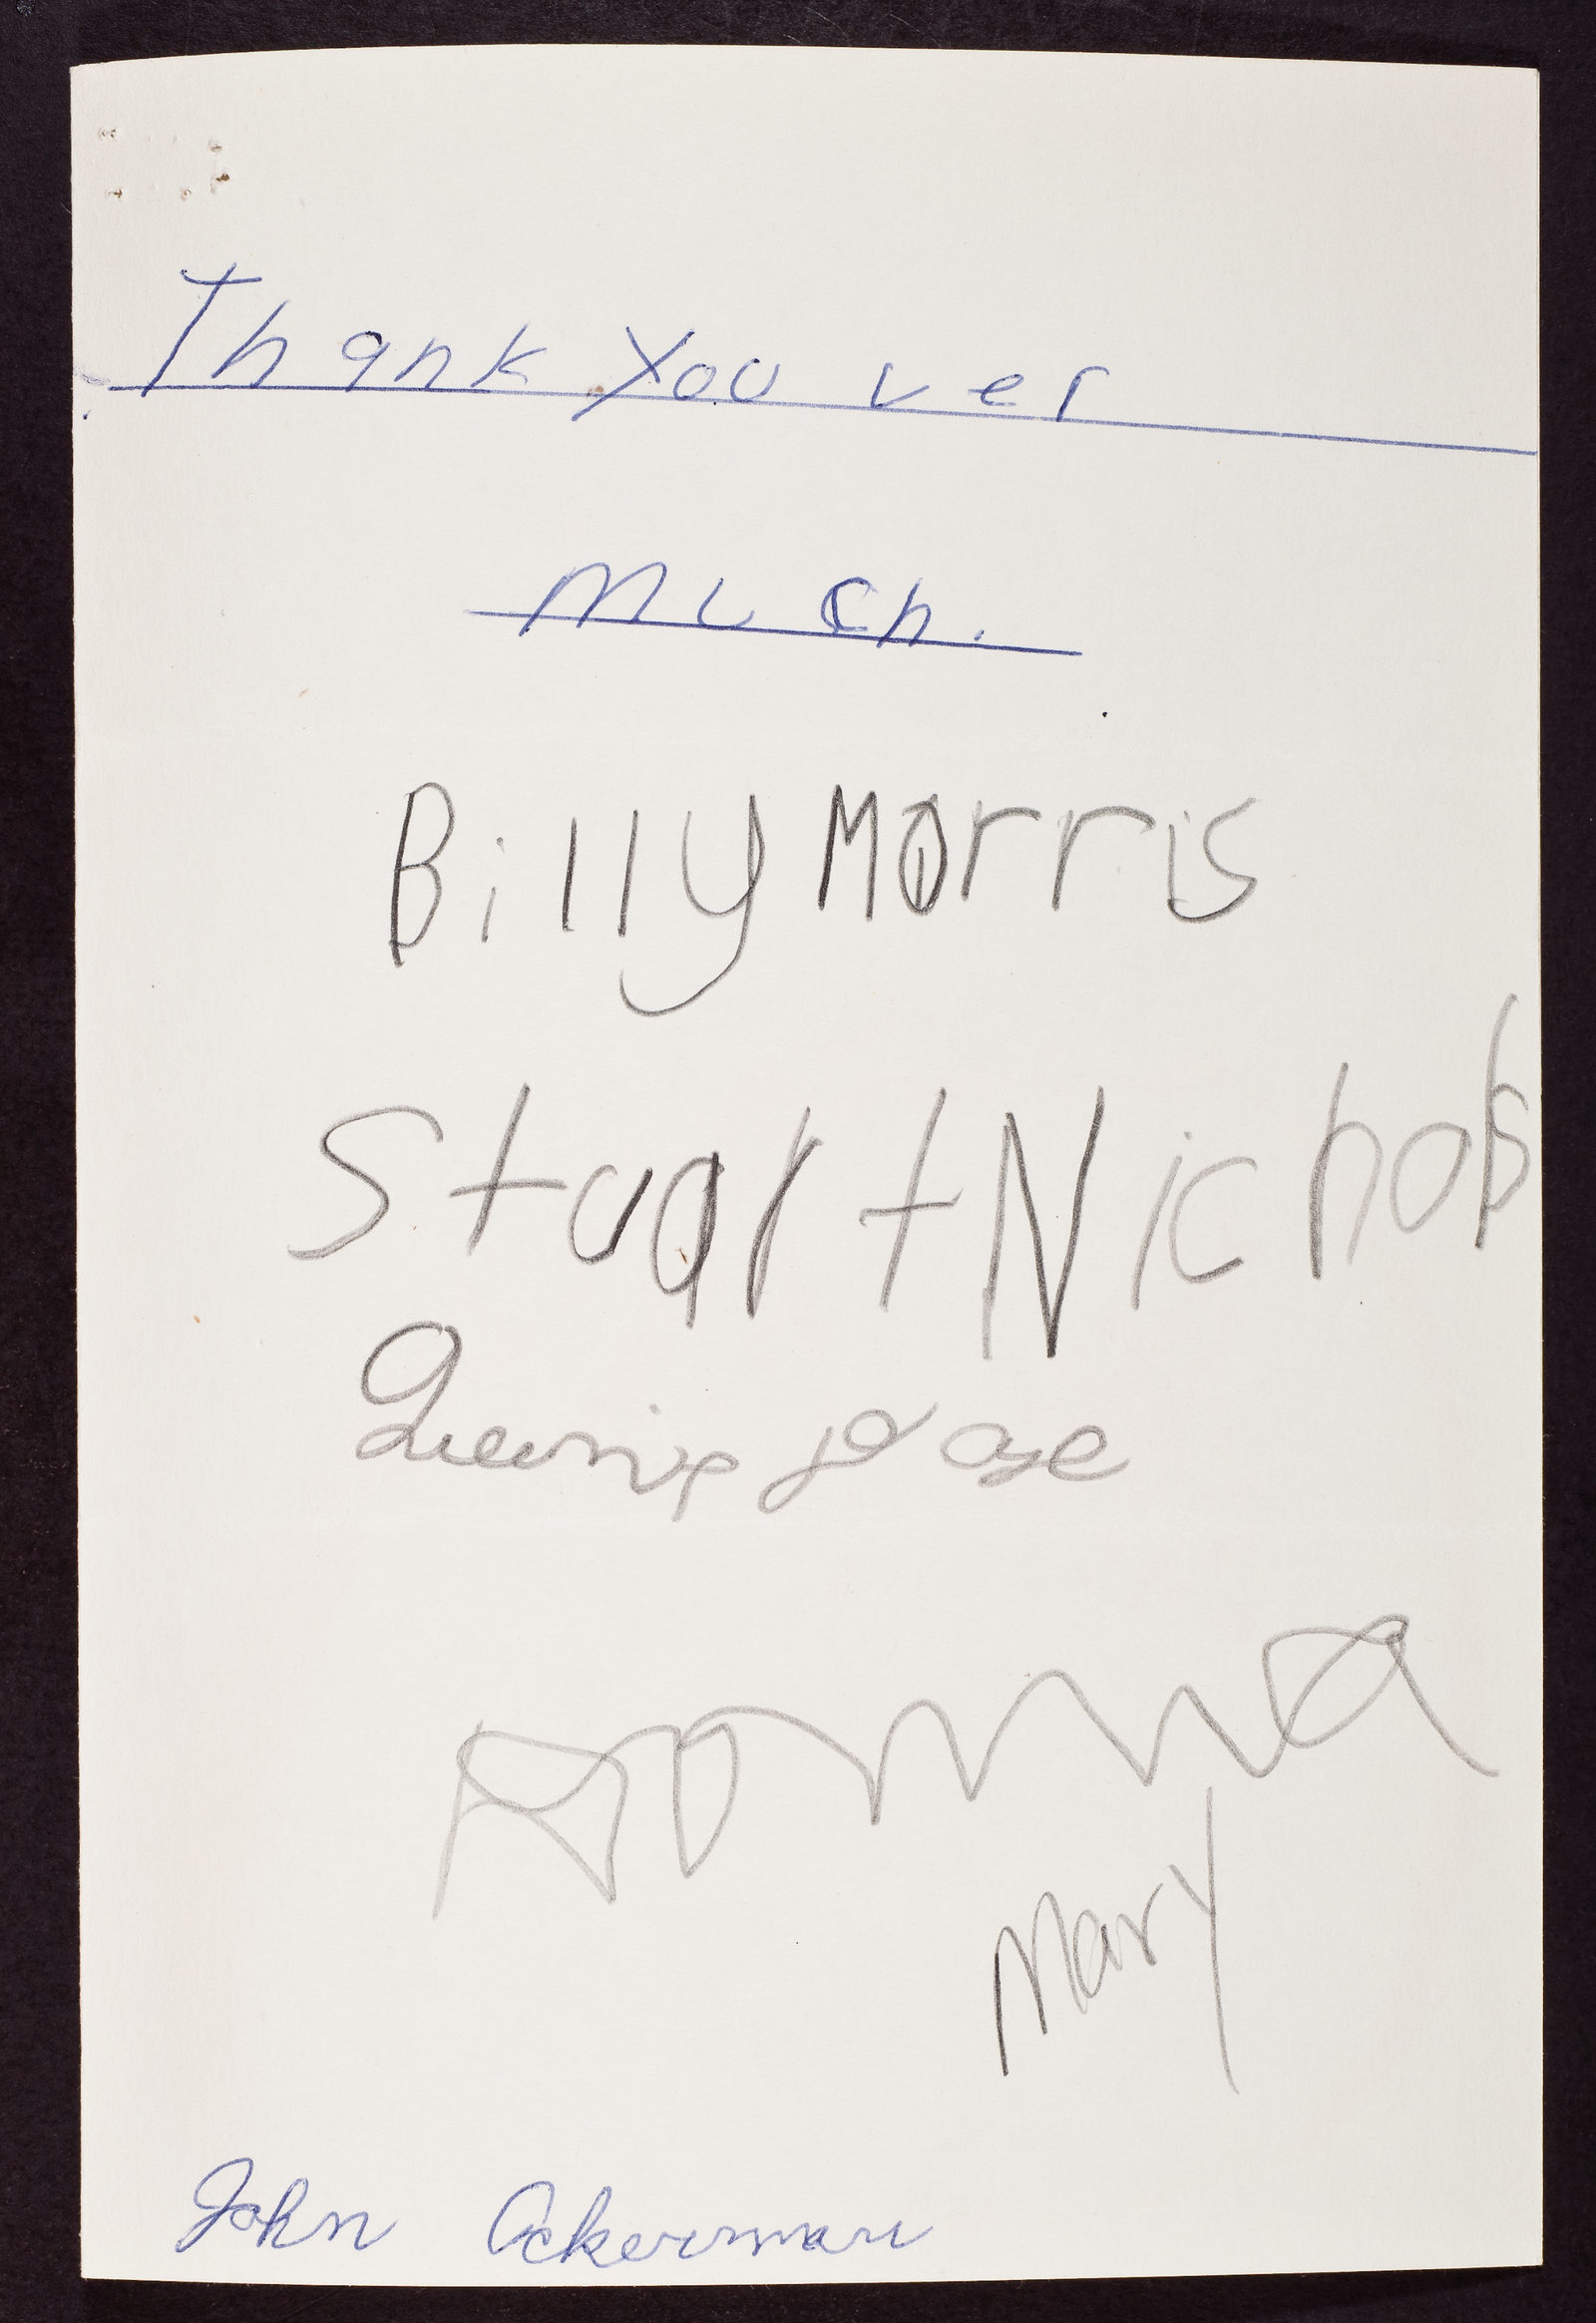 Thank You ver
Much.
Billy Morris
Stuart Nichols
Mary
John Ackerman